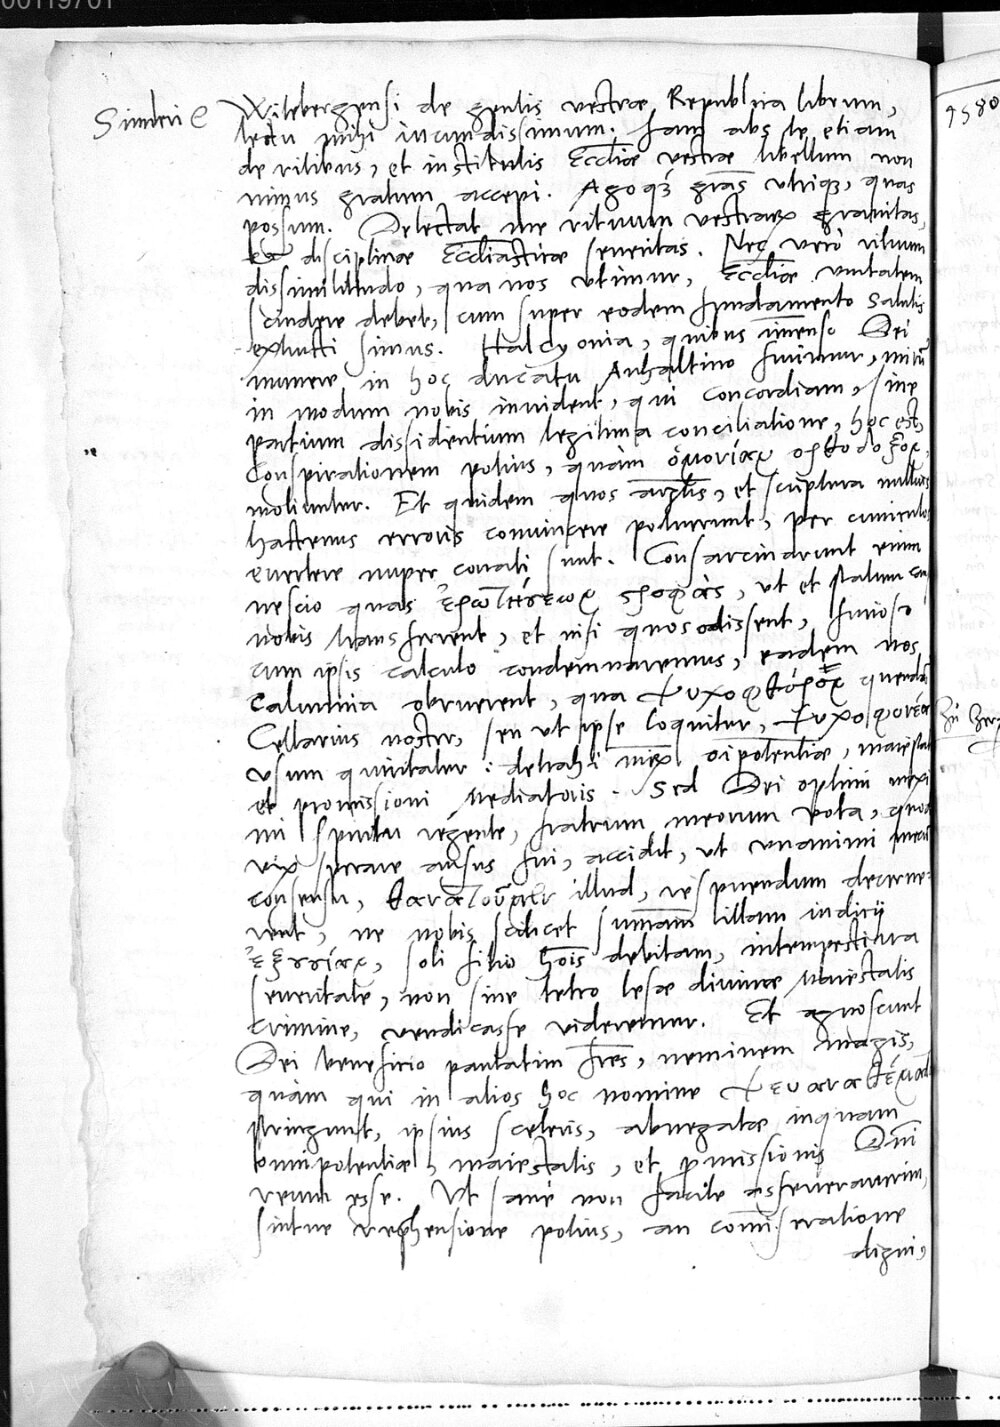 00119701
Simleri
Witebergensi de gentis vestræ Republica librum,
lectu mihi iucundissimum. Jam abs te etiam
de ritibus, et institutis Eccliæ vestræ libellum non
minus gratum accepi. Agoq3 gras vtriq3, quas
possum. Delectat me rituum vestraru grauitas,
et disciplinæ Eccliasticæ seueritas. Neq3 verò rituum
dissimilitudo, qua nos vtimur, Eccliæ vnitatem
scindere debet, cum super eodem fundamento salutis
exstructi simus. Halcyonia, quibus imenso Dei
munere in hoc ducatu Anhaltino fruimur, mirū
in modum nobis inuident, qui concordiam, sine
partium dissidentium legitima conciliatione, hoc est,
conspirationem potius, quàm ὁμονίαν ορθοδοξον,
moliuntur. Et quidem quos argtis, et scriptura nullius
hactenus erroris conuincere potuerunt, per cuniculos
euertere nuper conati sunt. Consarcinarunt enim
nescio quas ἐρωτήσεων
nobis transferrent, et nisi quos odissent, furioso
cum ipsis calculo condemnaremus, eadem nos
calumnia obruerent, qua quendā
Cellarius noster, seu vt ipse loquitur,
vsum quiritatur: detrahi nirm oipotentiæ, maiestati
et promissioni Mediatoris. Sed Dei optimi maxi
mi spiritu regente, fratrum meorum vota, quod
vix sperare ausus fui, accidit, ut vnanimi
consensu, illud, respuendum decerne-
rent, ne nobis scilicet sumam illam iudicij
ἐξουσίαν, soli filio hois debitam, intempestiua
seueritate, non sine tetro lesæ diuinæ Maiestatis
crimine, vendicasse videremur. Et agnoscunt
Dei beneficio paulatim fres, neminem magis,
quàm qui in alios hoc nomine
stringunt, ipsius sceleris, abnegatæ inquam
omnipotentiæ, maiestatis, et pmissionis Dni
reum esse. Vt sanè non facile asseuerauerim,
sintne reprehensione potius, an comiseratione
digni,
1580